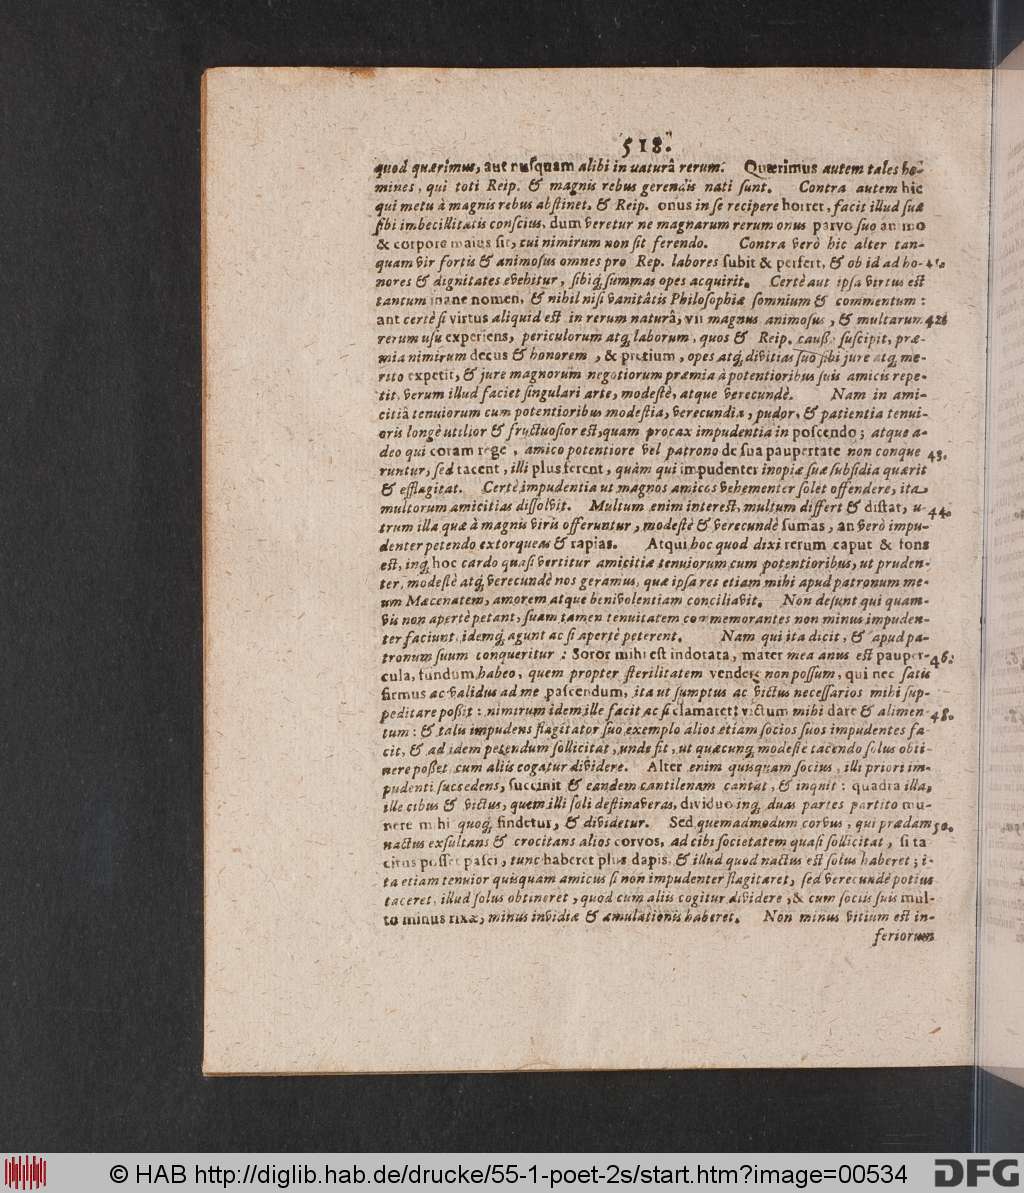 518.
quod quærimus, aut nusquam alibi in naturâ rerum. Quærimus autem tales ho-
mines, qui toti Reip. & magnis rebus gerendis nati sunt. Contra autem hic
qui metu à magnis rebus abstinet, & Reip. onus in se recipere horret, facit illud suæ
sibi imbecillitatis conscius, dum veretur ne magnarum rerum onus parvo suo animo
& corpore maius sit, cui nimirum non sit ferendo. Contra verò hic alter tan-
quam vir fortis & animosus omnes pro Rep. labores subit & perfert, & ob id ad ho-
nores & dignitates evehitur, sibiq́ summas opes acquirit. Certè aut ipsa virtus est
tantum inane nomen, & nihil nisi vanitâtis Philosophiæ somnium & commentum:
aut certè si virtus aliquid est in rerum naturâ, vir magnus animosus, & multarum 42.
rerum usu experiens, periculorum atq́ laborum, quos & Reip. caußa suscipit, præ-
mia nimirum decus & honorem, & pretium, opes atq́ divitias suo sibi jure atq́ me-
rito expetit, & jure magnorum negotiorum præmia à potentioribus suis amicis repe-
tit, verum illud faciet singulari arte, modestè, atque verecundè. Nam in ami-
citiâ tenuiorum cum potentioribus modestia, verecundia, pudor, & patientia tenui-
oris longè utilior & fructuosior est, quam procax impudentia in poscendo; atque a-
deo qui coram rege, amico potentiore vel patrono de sua paupertate non conque 43.
runtur, sed tacent, illi plus ferent, quàm qui impudenter inopiæ suæ subsidia quærit
& efflagitat. Certè impudentia ut magnos amicos vehementer solet offendere, ita
multorum amicitias dissolvit. Multum enim interest, multum differt & distat, u- 44.
trum illa quæ à magnis viris offeruntur, modestè & verecundè sumas, an verò impu-
denter petendo extorqueas & rapias. Atqui hoc quod dixi rerum caput & fons
est, inq́ hoc cardo quasi vertitur amicitiæ tenuiorum cum potentioribus, ut pruden-
ter, modestè atq́ verecundè nos geramus, quæ ipsa res etiam mihi apud patronum me-
um Mæcenatem, amorem atque benivolentiam conciliavit. Non desunt qui quam-
vis non apertè petant, suam tamen tenuitatem commemorantes non minus impuden-
ter faciunt, idemq́ agunt ac si apertè peterent. Nam qui ita dicit, & apud pa-
tronum suum conqueritur: Soror mihi est indotata, mater mea anus est pauper- 46.
cula, fundum habeo, quem propter sterilitatem vendere non possum, qui nec satis
firmus ac validus ad me pascendum, ita ut sumptus ac victus necessarios mihi sup-
peditare poßit: nimirum idem ille facit ac si clamaret: victum mihi date & alimen- 48.
tum: & talis impudens flagitator suo exemplo alios etiam socios suos impudentes fa-
cit, & ad idem petendum sollicitat, unde fit, ut quæcunq́ modeste tacendo solus obti-
nere poßet, cum aliis cogatur dividere. Alter enim quisquam socius, illi priori im-
pudenti succedens, succinit & eandem cantilenam cantat, & inquit: quadra illa,
ille cibus & victus, quem illi soli destinaveras, dividuo inq́ duas partes partito mu-
nere mihi quoq́ findetur, & dividetur. Sed quemadmodum corvus, qui prædam 50.
nactus exsultans & crocitans alios corvos, ad cibi societatem quasi sollicitat, si ta
citus posset pasci, tunc haberet plus dapis, & illud quod nactus est solus haberet; i-
ta etiam tenuior quisquam amicus si non impudenter flagitaret, sed verecundè potius
taceret, illud solus obtineret, quod cum aliis cogitur dividere, & cum sociis suis mul-
to minus rixæ, minus invidiæ & æmulationis haberet. Non minus vitium est in-
feriorum
© HAB http://diglib.hab.de/drucke/55-1-poet-2s/start.htm?image=00534
DFG